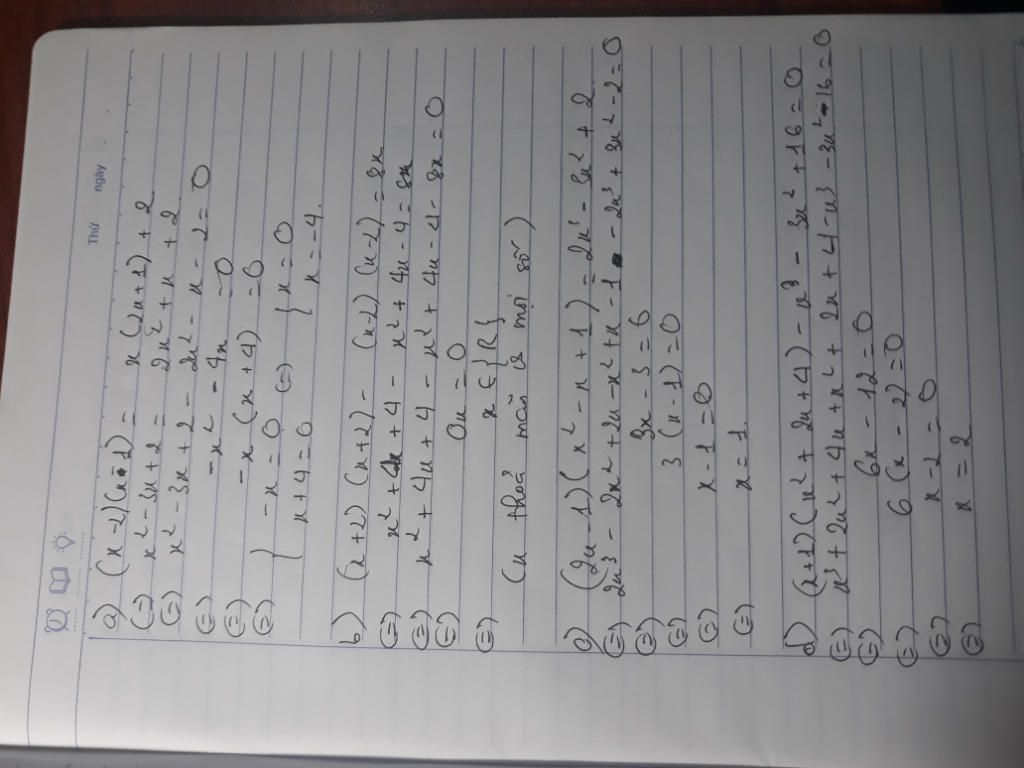 Thứ ngày
a) (x-2)(x-1) = x(2x+1) + 2
(=) x² - 3x + 2 = 2x² + x + 2
(=) x² - 3x + 2 - 2x² - x - 2 = 0
(=) -x² - 4x = 0
(=) -x (x+4) = 0
(=) { -x = 0 (=) { x = 0
x + 4 = 0 x = -4.
b) (x+2)(x+2) - (x-2)(x-2) = 8x
(=) x² + 4x + 4 - x² + 4x - 4 = 8x
(=) x² + 4x + 4 - x² + 4x - 4 - 8x = 0
(=) 0x = 0
(=) x ∈ { R {
(x thoả mãn là mọi số)
c) (2x-1)(x² - x + 1) = 2x³ - 3x² + 2
(=) 2x³ - 2x² + 2x - x² + x - 1 - 2x³ + 3x² - 2 = 0
(=) 3x - 3 = 0
(=) 3(x-1) = 0
(=) x - 1 = 0
(=) x = 1.
d) (x+1)(x² + 2x + 4) - x³ - 3x² + 16 = 0
(=) x³ + 2x² + 4x + x² + 2x + 4 - x³ - 3x² - 16 = 0
(=) 6x - 12 = 0
(=) 6(x - 2) = 0
(=) x - 2 = 0
(=) x = 2